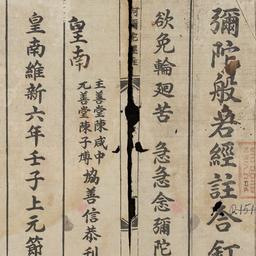 彌陀般若經註合釘
欲免輪廻苦 急急念彌陀
皇南
主善堂陳咸中
元善堂陳子博
協善信恭刋
皇南維新六年壬子上元節